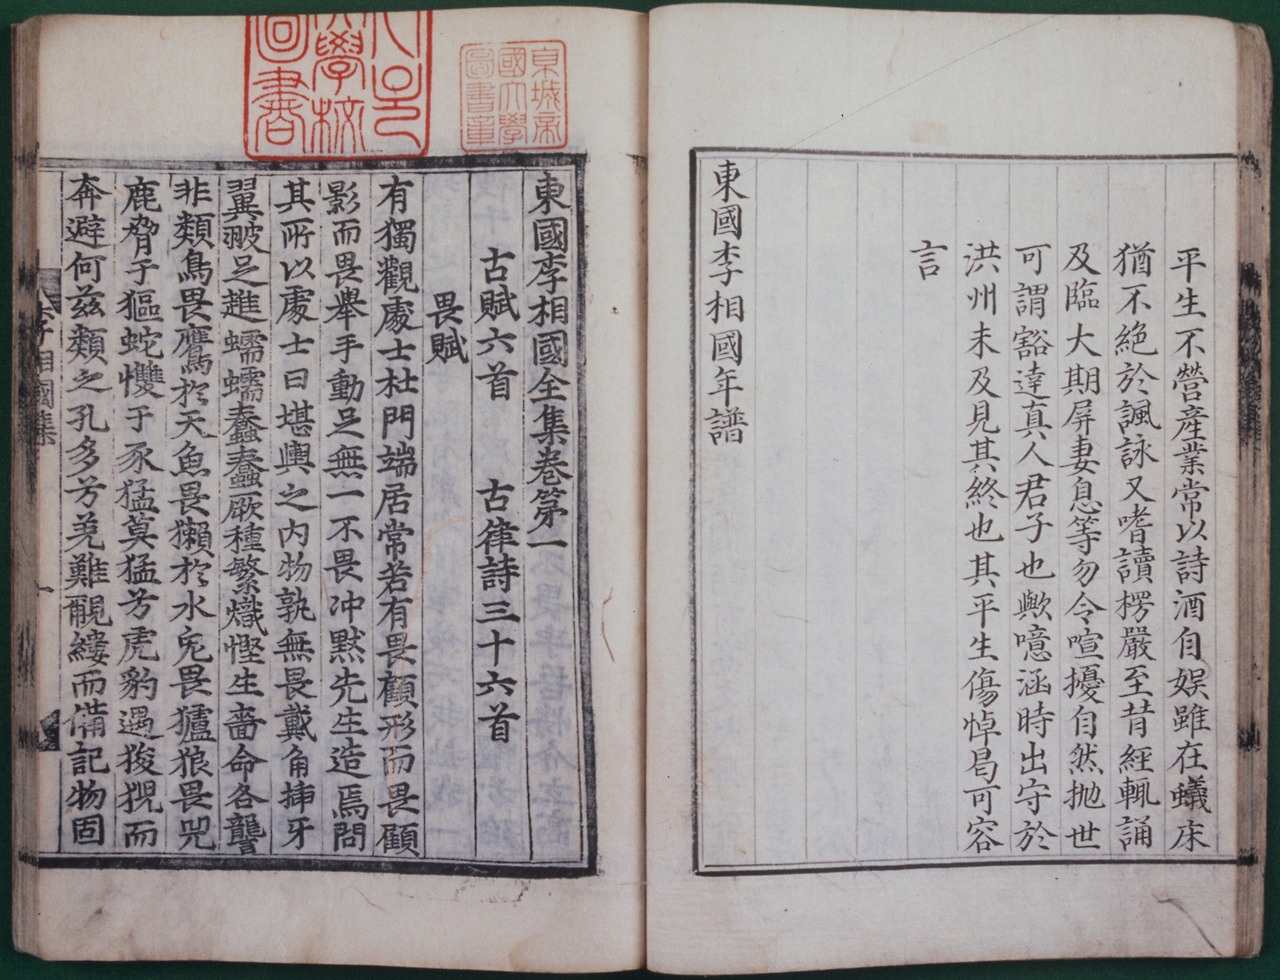 平生不營産業常以詩酒自娛雖在蟻床
猶不絶於諷詠又嗜讀楞嚴至昔經輒誦
及臨大期屏妻息等勿令喧擾自然抛世
可謂豁達真人君子也歟噫涵時出守於
洪州未及見其終也其平生傷悼曷可容
言
東國李相國年譜
東國李相國全集卷第一
古賦六首 古律詩三十六首
畏賦
有獨觀處士杜門端居常若有畏顧形而畏顧
影而畏擧手動足無一不畏冲默先生造焉問
其所以處士曰堪輿之内物孰無畏戴角揷牙
翼翍足趡蠕蠕蠢蠢厥種繁熾慳生嗇命各讋
非類鳥畏鷹於天魚畏獺於水兎畏獹狼畏兕
鹿脅于貙蛇愯于豕猛莫猛芳虎豹遇狻猊而
奔避何茲類之孔多芳羌難覼縷而備記物固
李相國集
一
京城帝
國大學
圖書章
學校
圖書